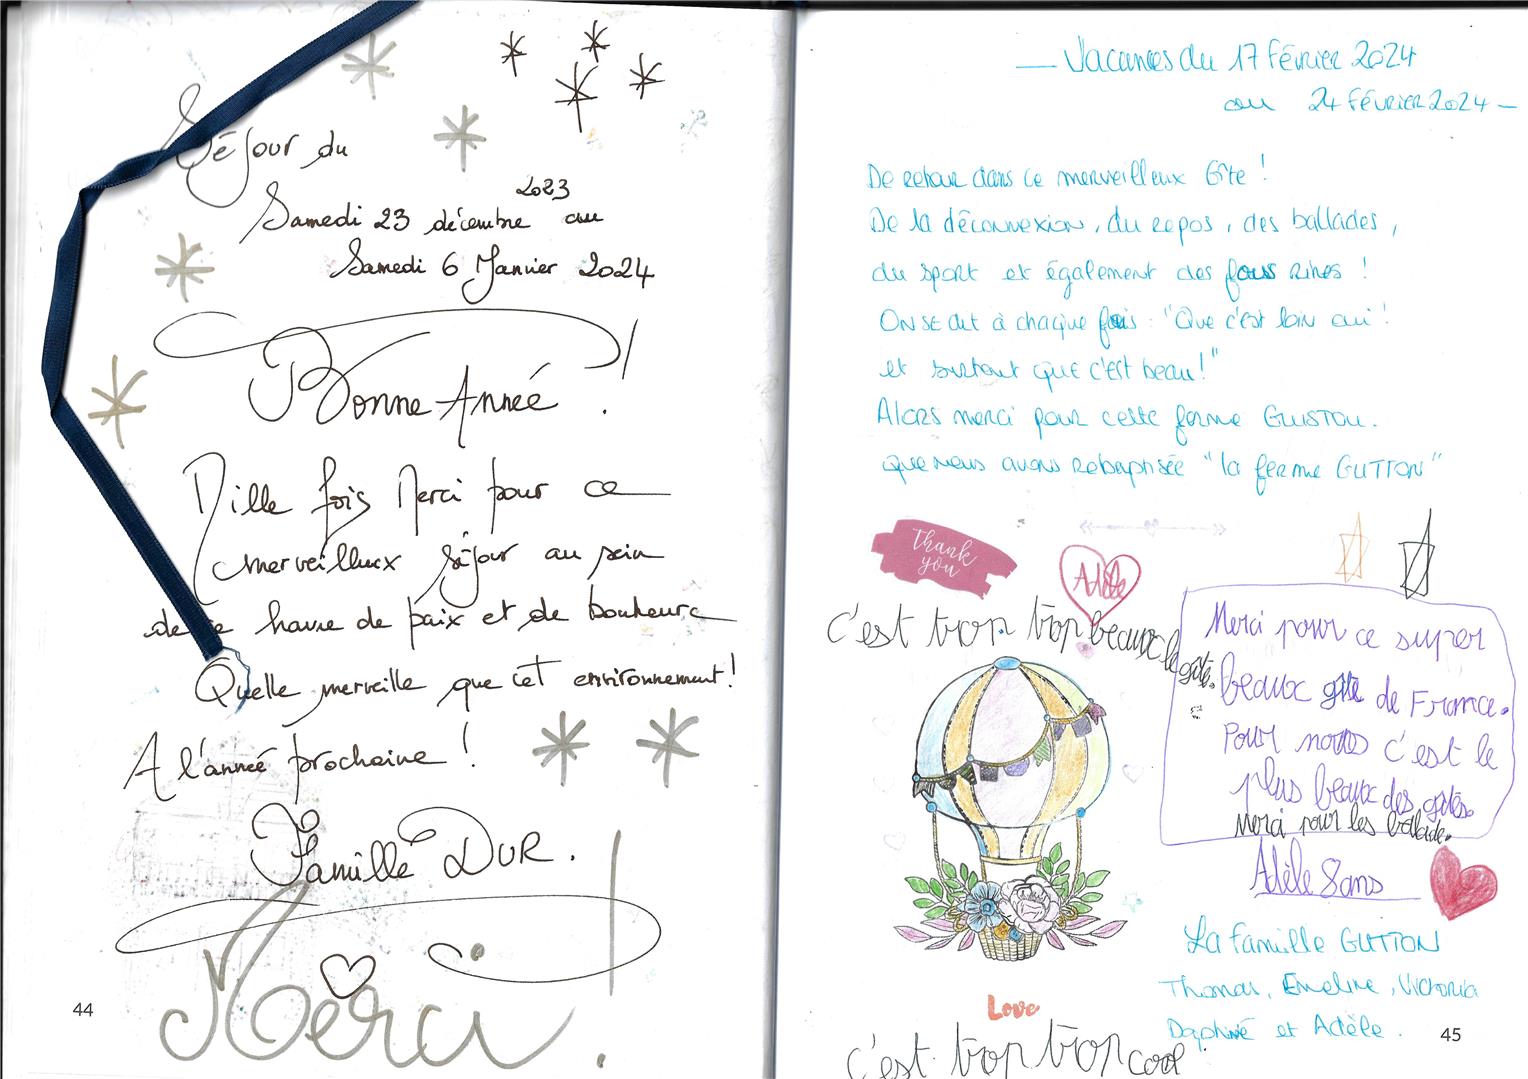 Séjour du
2023
Samedi 23 décembre au
Samedi 6 Janvier 2024
Bonne Année !
Mille fois Merci pour ce
merveilleux séjour au sein
de ce havre de paix et de bonheur
Quelle merveille que cet environnement !
A l'année prochaine !
Famille DUR.
Merci !
44
— Vacances du 17 Février 2024
au 24 Février 2024 —
De retour dans ce merveilleux Gîte !
De la déconnexion, du repos, des ballades,
du sport et également des fous rires !
On se dit à chaque fois : "Que c'est loin oui !
et surtout que c'est beau !"
Alors merci pour cette ferme GUISTOU.
que nous avons rebaptisée "la ferme GUTTON"
Thank
you
Adèle
c'est trop trop beaux le gîte.
Merci pour ce super
beaux gîte de France.
Pour nous c'est le
plus beaux des gîtes.
Merci pour les ballade.
Adèle 8 ans
La famille GUTTON
Thomas, Emeline, Victoria
Daphné et Adèle.
Love
c'est trop trop cool
45